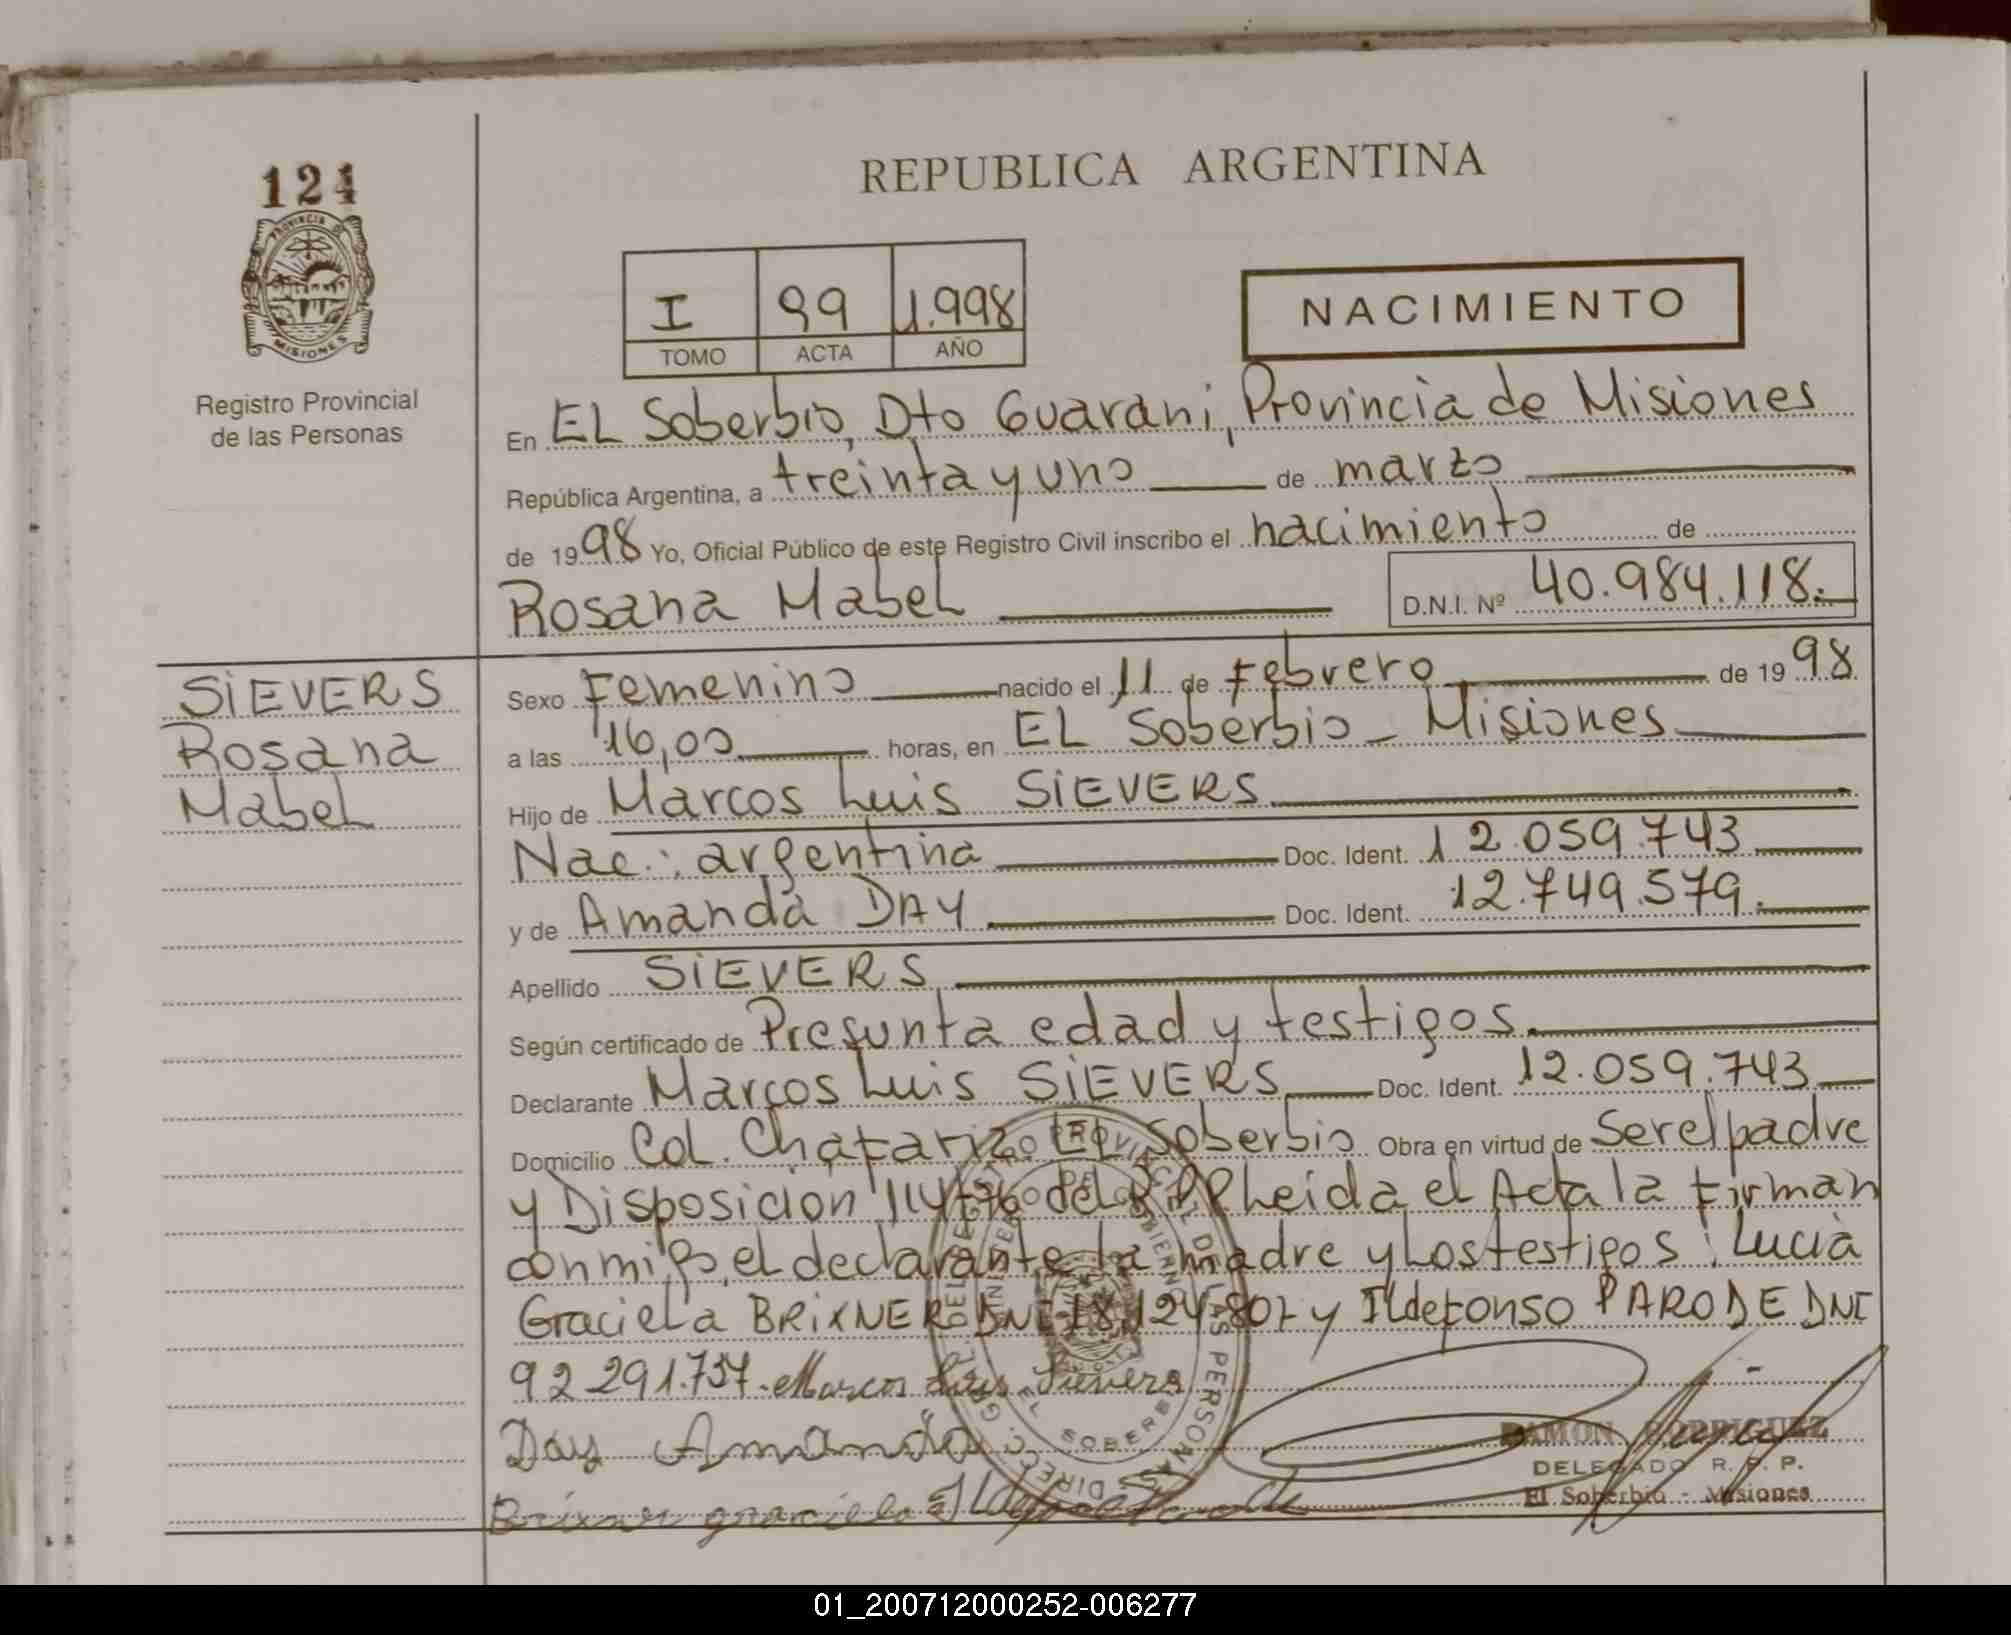 124
PROVINCIA DE
MISIONES
Registro Provincial
de las Personas
REPUBLICA ARGENTINA
I 99 1.998
TOMO ACTA AÑO
NACIMIENTO
En EL Soberbio, Dto Guarani, Provincia de Misiones
República Argentina, a treinta y uno de marzo
de 1998 Yo, Oficial Público de este Registro Civil inscribo el nacimiento de
Rosana Mabel D.N.I. Nº 40.984.118.
SiEVERS
Rosana
Mabel
Sexo Femenino nacido el 11 de Febrero de 1998
a las 16,00 horas, en EL Soberbio - Misiones
Hijo de Marcos Luis SiEVERS
Nac.: argentina Doc. Ident. 12.059.743
y de Amanda DAY Doc. Ident. 12.749.579.
Apellido SiEVERS
Según certificado de Presunta edad y testigos.
Declarante Marcos Luis SiEVERS Doc. Ident. 12.059.743
Domicilio Col. Chafariz EL Soberbio Obra en virtud de Ser el padre
y Disposicion 114/76 del R.P.P. Leida el Acta la Firman
conmigo, el declarante, la madre y Los testigos: Lucia
Graciela BRiXNER DNI 18.124.807 y Ildefonso PARODE DNI
92 291.737. Marcos Luis Sievers
Day Amanda
Brixner graciela
DIRECC. GRAL. DEL REGISTRO PROVINCIAL DE LAS PERSONAS
MINISTERIO DE GOBIERNO
EL SOBERBIO
RAMON RODRIGUEZ
DELEGADO R. P. P.
El Soberbio - Misiones
01_200712000252-006277